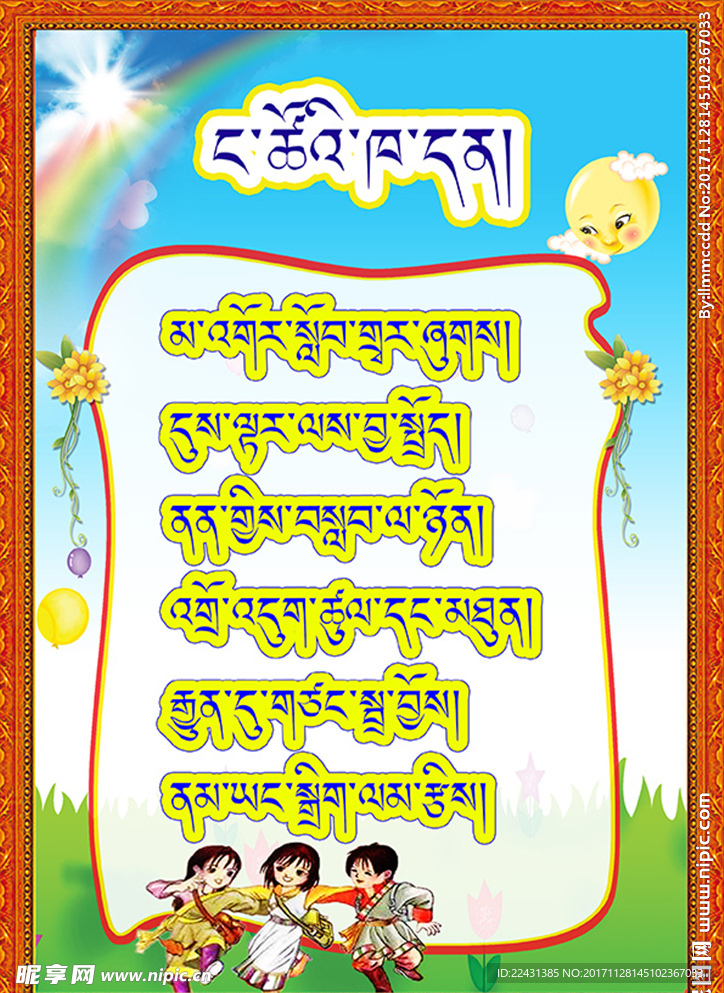 ང་ཚོའི་ཁ་དན།
མ་འགོར་སློབ་གྲྭར་ཞུགས།
དུས་ལྟར་ལས་བྱ་སྤྲོད།
ནན་གྱིས་བསླབ་ལ་ཉོན།
འགྲོ་འདུག་ཚུལ་དང་མཐུན།
རྒྱུན་དུ་གཙང་སྦྲ་བྱོས།
ནམ་ཡང་སྒྲིག་ལམ་རྩིས།
By:llmmccdd No:20171128145102367033
www.nipic.com
昵享网 www.nipic.cn
ID:22431385 NO:20171128145102367033